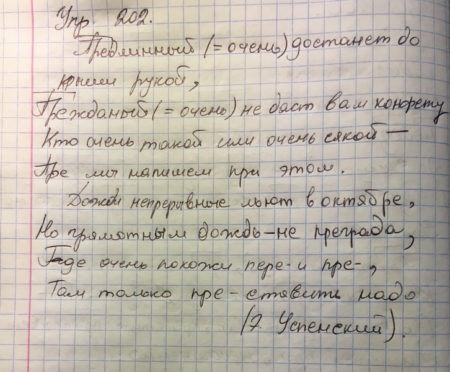 Упр. 202.
Предлинный (= очень) достанет до
крыши рукой,
Прежадный (= очень) не даст вам конфету
Кто очень такой или очень сякой —
Пре мы напишем при этом.
Дожди непрерывные льют в октябре,
Но грамотным дождь – не преграда,
Где очень похожи пере- и пре-,
Там только пре- ставить надо
(Э. Успенский).